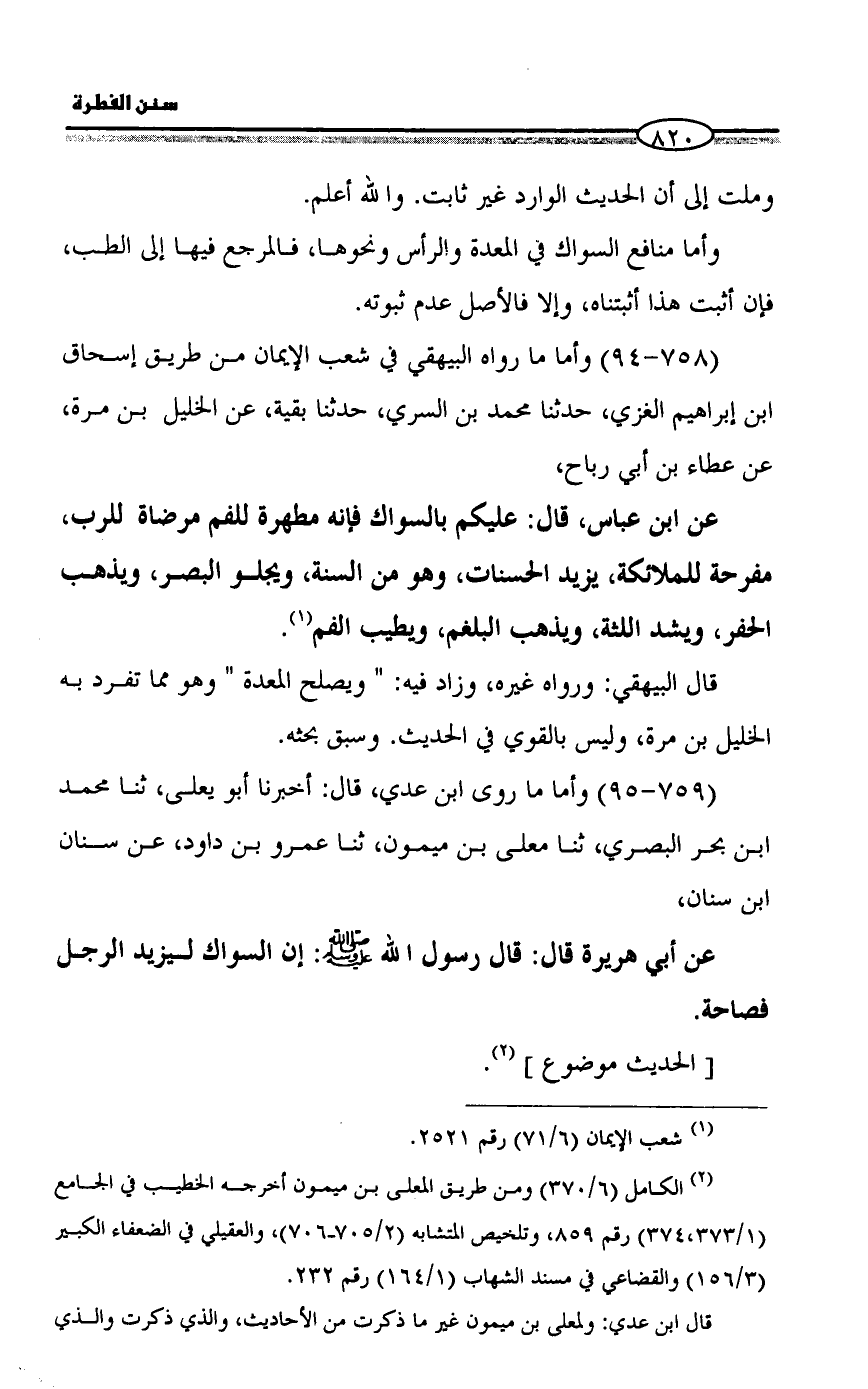 سنن الفطرة
٨٢٠
وملت إلى أن الحديث الوارد غير ثابت. والله أعلم.
وأما منافع السواك في المعدة والرأس ونحوها، فالمرجع فيها إلى الطب،
فإن أثبت هذا أثبتناه، وإلا فالأصل عدم ثبوته.
(٧٥٨-٩٤) وأما ما رواه البيهقي في شعب الإيمان من طريق إسحاق
ابن إبراهيم الغزي، حدثنا محمد بن السري، حدثنا بقية، عن الخليل بن مرة،
عن عطاء بن أبي رباح،
عن ابن عباس، قال: عليكم بالسواك فإنه مطهرة للفم مرضاة للرب،
مفرحة للملائكة، يزيد الحسنات، وهو من السنة، ويجلو البصر، ويذهب
الحفر، ويشد اللثة، ويذهب البلغم، ويطيب الفم(١).
قال البيهقي: ورواه غيره، وزاد فيه: " ويصلح المعدة " وهو مما تفرد به
الخليل بن مرة، وليس بالقوي في الحديث. وسبق بحثه.
(٧٥٩-٩٥) وأما ما روى ابن عدي، قال: أخبرنا أبو يعلى، ثنا محمد
ابن بحر البصري، ثنا معلى بن ميمون، ثنا عمرو بن داود، عن سنان
ابن سنان،
عن أبي هريرة قال: قال رسول الله ﷺ: إن السواك ليزيد الرجل
فصاحة.
[ الحديث موضوع ] (٢).
(١) شعب الإيمان (٧١/٦) رقم ٢٥٢١.
(٢) الكامل (٣٧٠/٦) ومن طريق المعلى بن ميمون أخرجه الخطيب في الجامع
(٣٧٤،٣٧٣/١) رقم ٨٥٩، وتلخيص المتشابه (٧٠٥/٢-٧٠٦)، والعقيلي في الضعفاء الكبير
(١٥٦/٣) والقضاعي في مسند الشهاب (١٦٤/١) رقم ٢٣٢.
قال ابن عدي: ولمعلى بن ميمون غير ما ذكرت من الأحاديث، والذي ذكرت والذي